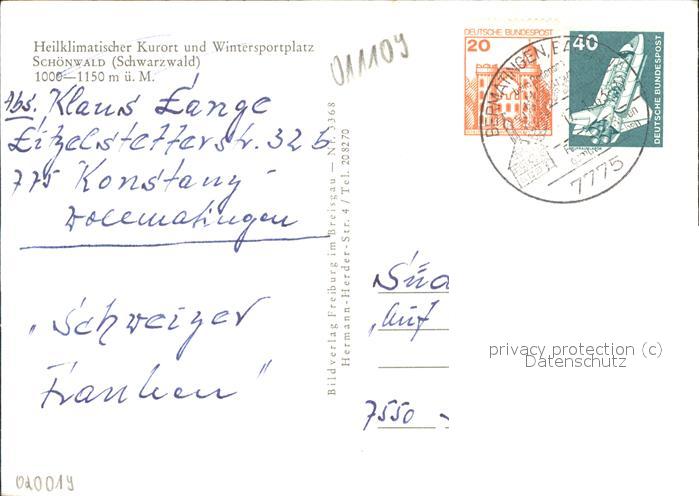 Heilklimatischer Kurort und Wintersportplatz
SCHÖNWALD (Schwarzwald)
1000—1150 m ü. M.
Abs. Klaus Lange
Litzelstetterstr. 32 b
775 Konstanz -
Wollmatingen
„Schweizer
Franken"
020019
011109
Bildverlag Freiburg im Breisgau — Nr. 3368
Hermann-Herder-Str. 4 / Tel. 208270
DEUTSCHE BUNDESPOST
20
40
DEUTSCHE BUNDESPOST
BERMATINGEN,
7775
Süd
„Auf
7550 -
privacy protection (c)
Datenschutz